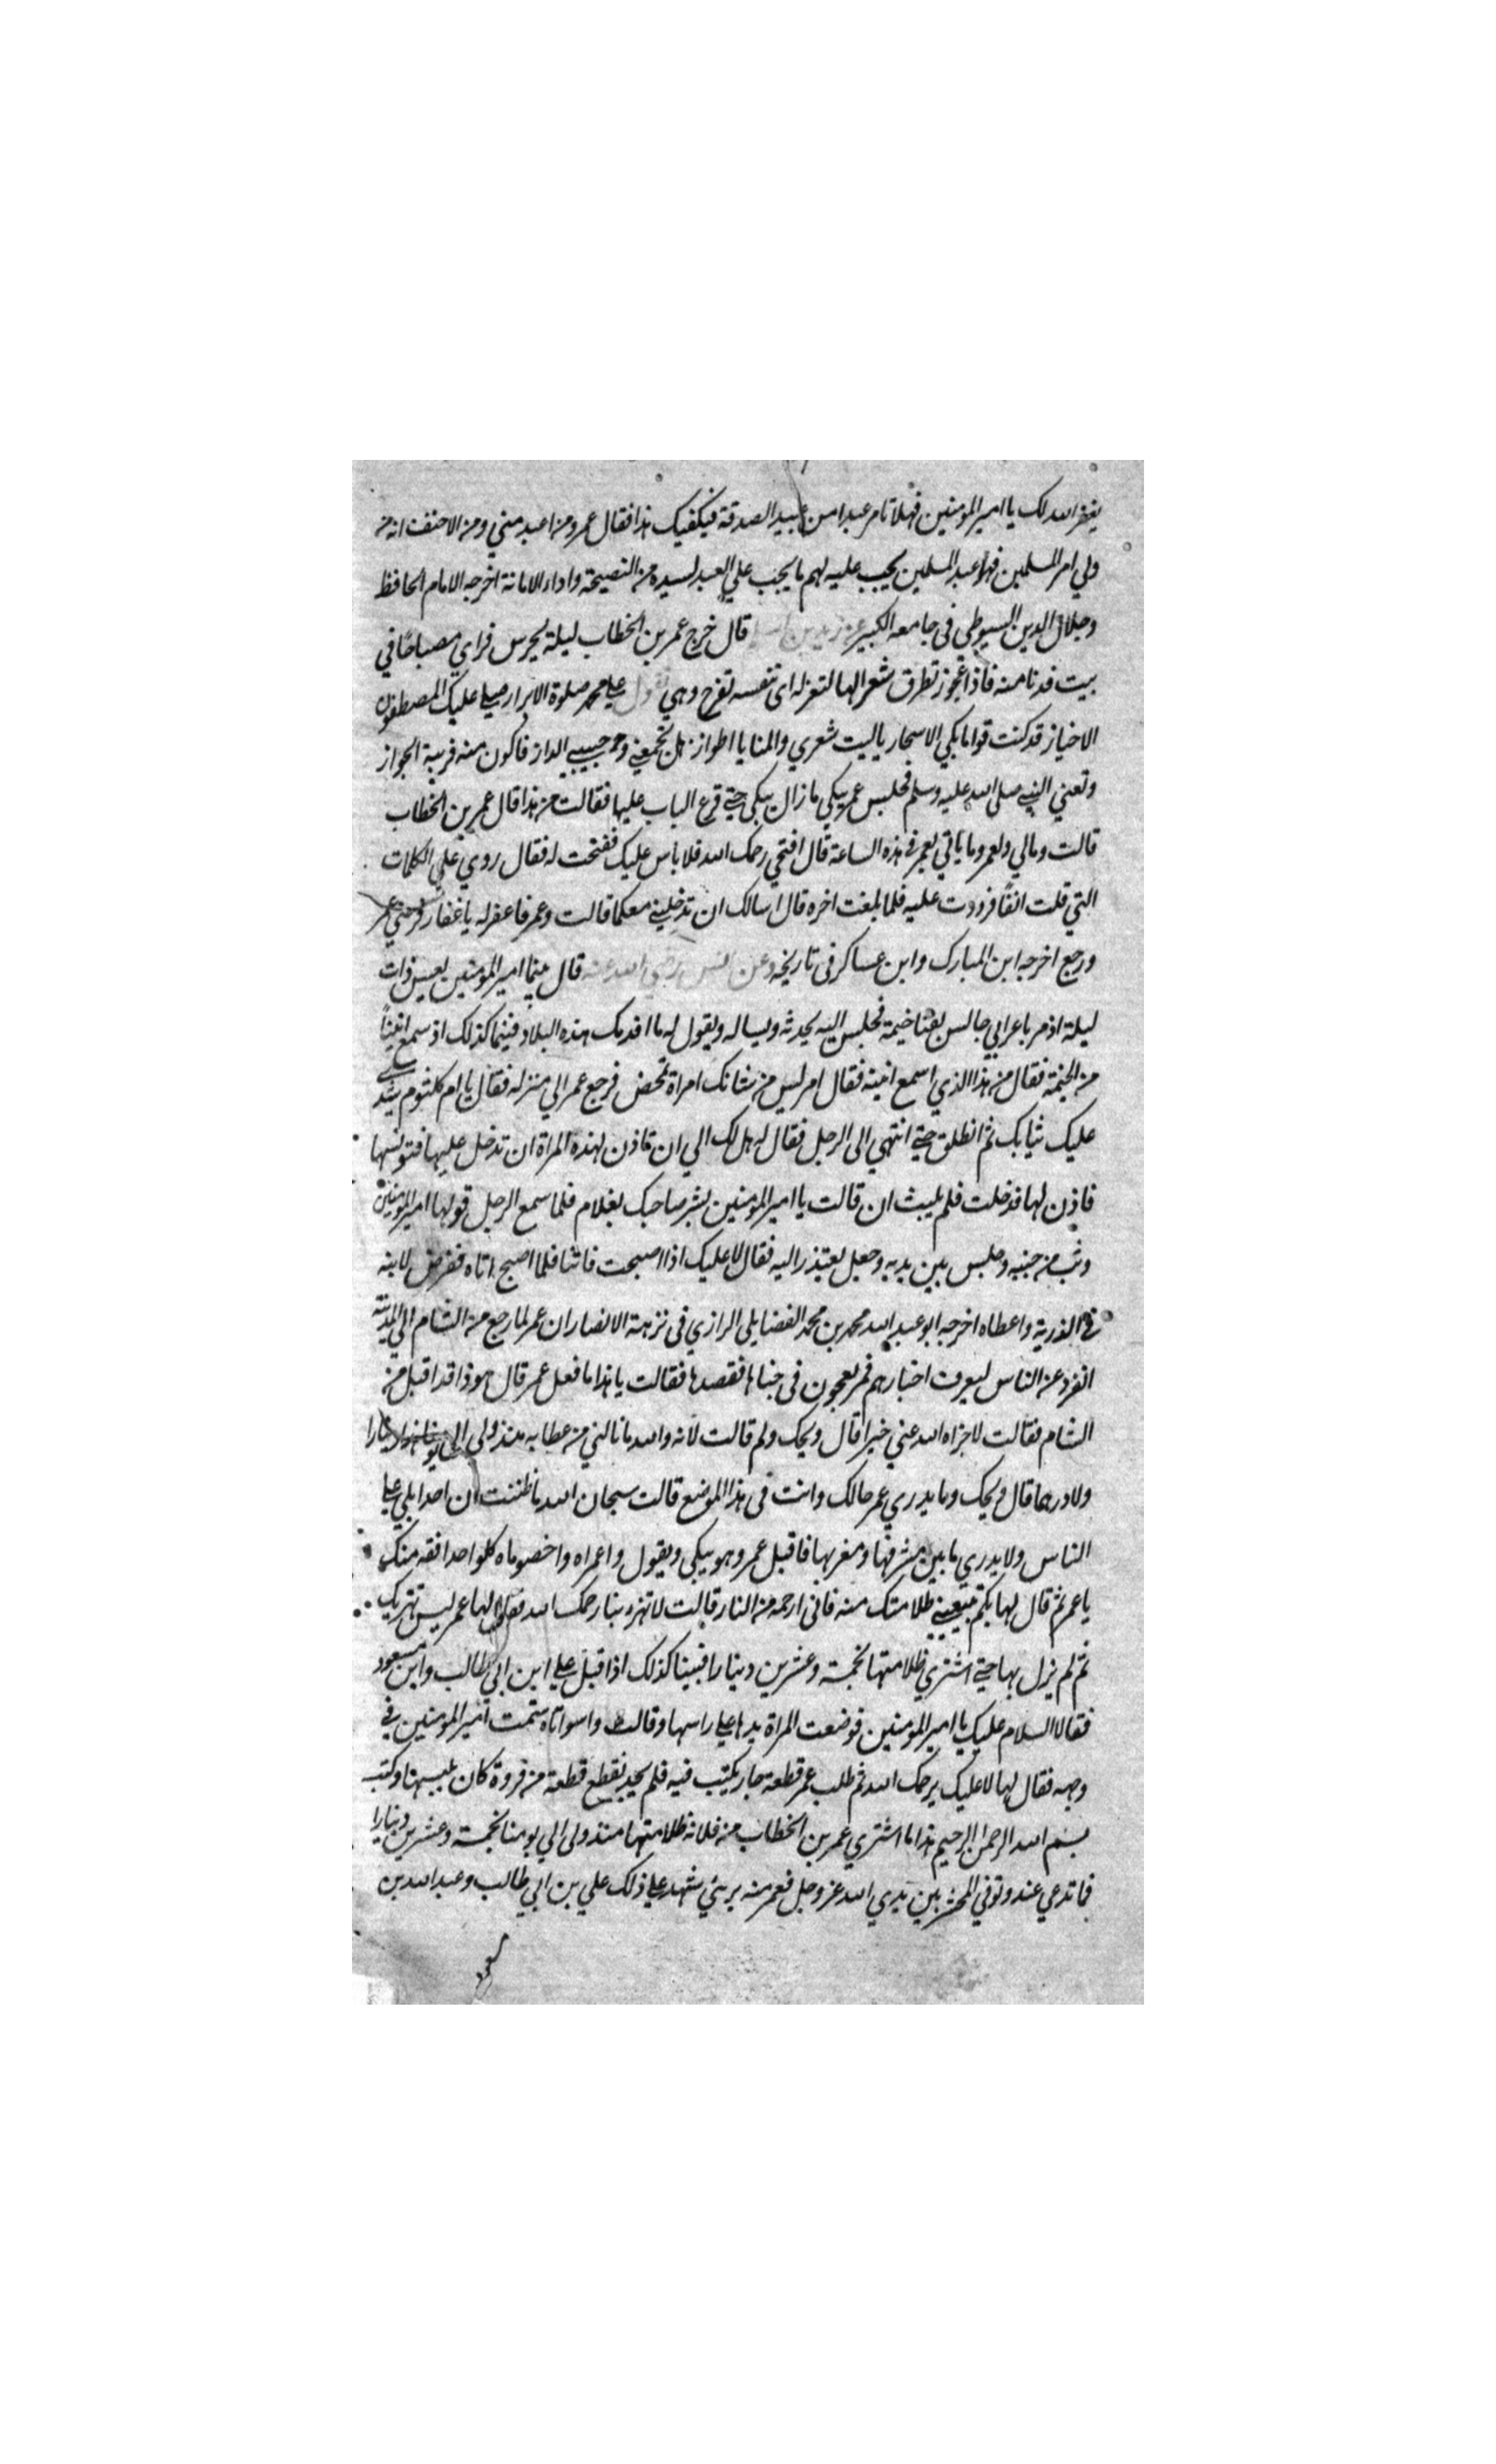 يغفر الله لك يا امير المومنين فهلا تامر عبدا من عبيد الصدقة فيكفيك هذا فقال عمر ومن اعبد مني ومن الاحنف انه من
ولي امر المسلمين فهو عبد المسلمين يجب عليه لهم ما يجب علي العبد لسيده من النصيحة واداء الامانة اخرجه الامام الحافظ
وجلال الدين السيوطي في جامعه الكبير عن زيد بن اسلم قال خرج عمر بن الخطاب ليلة يحرس فراي مصباحا في
بيت فدنا منه فاذا عجوز تطرق شعرا لها لتغزله اي تنفسه تفرح وهي تقول علي محمد صلوة الابرار صلي عليك المصطفون
الاخياز قد كنت قواما بكي الاسحار يا ليت شعري والمنايا اطواز هل تجمعني وحبيبي الداز فاكون منه قريبة الجواز
وتعني النبي صلى الله عليه وسلم فجلس عمر يبكي ما زال يبكي حتي قرع الباب عليها فقالت من هذا قال عمر بن الخطاب
قالت ومالي ولعمر وما ياتي بعمر في هذه الساعة قال افتحي رحمك الله فلا باس عليك ففتحت له فقال ردي علي الكلمات
التي قلت انفا فرددت عليه فلما بلغت اخره قال اسالك ان تدخليني معكما قالت وعمر فاغفر له يا غفار فرضي عمر
ورجع اخرجه ابن المبارك وابن عساكر في تاريخه وعن انس رضي الله عنه قال بينما امير المومنين يعس ذات
ليلة اذ مر باعرابي جالس بفنا خيمة فجلس اليه يحدثه ويساله ويقول له ما اقدمك هذه البلاد فبينما كذلك اذ سمع انينا
من الخيمة فقال من هذا الذي اسمع انينه فقال امر ليس من شانك امراة تمخض فرجع عمر الي منزله فقال يا ام كلثوم شدي
عليك ثيابك ثم انطلق حتي انتهي الى الرجل فقال له هل لك الي ان تاذن لهذه المراة ان تدخل عليها فتونسها
فاذن لها فدخلت فلم يلبث ان قالت يا امير المومنين بشر صاحبك بغلام فلما سمع الرجل قولها امير المومنين
وثب من جنبه وجلس بين يديه وجعل يعتذر اليه فقال لا عليك اذا اصبحت فاتنا فلما اصبح اتاه ففرض لابنه
في الذرية واعطاه اخرجه ابو عبد الله محمد بن محمد الفضايلي الرازي في نزهة الانصار ان عمر لما رجع من الشام الي المدينة
انفرد عن الناس ليعرف اخبارهم فمر بعجوز في خباها فقصدها فقالت يا هذا ما فعل عمر قال هوذا قد اقبل من
الشام فقالت لا جزاه الله عني خيرا قال ويحك ولم قالت لانه والله ما نالني من عطايه منذ ولي الي دينارا
ولا درهما قال ويحك وما يدري عمر حالك وانت في هذا الموضع قالت سبحان الله ما ظننت ان احدا يلي علي
الناس ولا يدري ما بين مشرقها ومغربها فاقبل عمر وهو يبكي ويقول واعمراه واخصوماه كل واحد افقه منك
يا عمر ثم قال لها بكم تبيعيني ظلامتك منه فاني ارحمه من النار قالت لا تهزو بنا رحمك الله فقال لها عمر ليس تهزيك
ثم لم يزل بها حتي اشتري ظلامتها بخمسة وعشرين دينارا فبينا كذلك اذا قبل علي ابن ابي طالب وابن مسعود
فقالا السلام عليك يا امير المومنين فوضعت المراة يدها علي راسها وقالت واسواتاه شتمت امير المومنين في
وجهه فقال لها لا عليك يرحمك الله ثم طلب عمر قطعة جلد يكتب فيه فلم يجد فقطع قطعة من فروة كان يلبسها وكتب
بسم الله الرحمن الرحيم هذا ما اشتري عمر بن الخطاب من فلانة ظلامتها منذ ولى الي يومنا بخمسة وعشرين دينارا
فما تدعي عند وقوفي المحشر بين يدي الله عز وجل فعمر منه بريئ شهد علي ذلك علي بن ابي طالب وعبد الله بن
مسعود